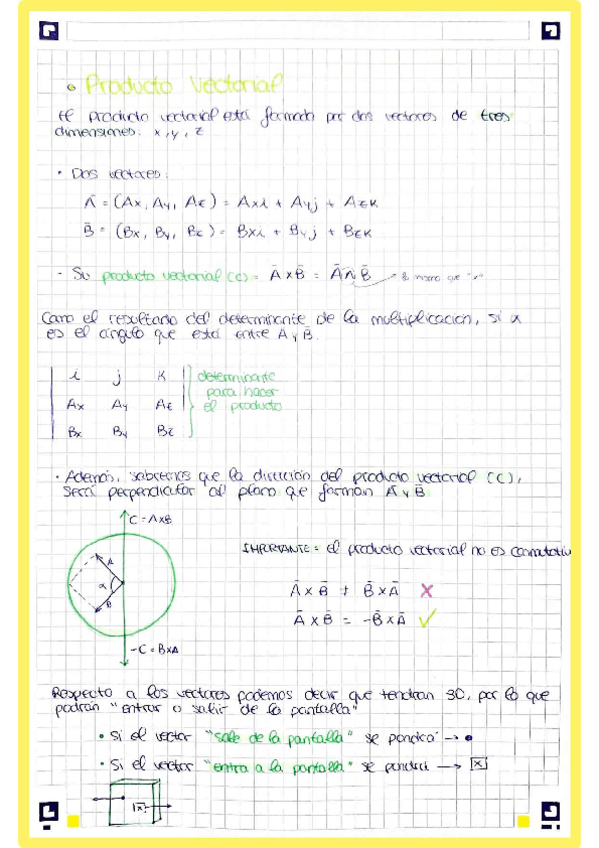 • Producto vectorial
El producto vectorial está formado por dos vectores de tres
dimensiones: x, y, z
• Dos vectores:
Ā = (Ax, Ay, Az) = Axi + Ayj + Azk
B̄ = (Bx, By, Bz) = Bxi + Byj + Bzk
- Su producto vectorial (C) = Ā x B̄ = Ā ∧ B̄ → lo mismo que "x"
Como el resultado del determinante de la multiplicación, si α
es el ángulo que está entre A y B.
i j k determinante
para hacer
Ax Ay Az el producto
Bx By Bz
• Además, sabremos que la dirección del producto vectorial (C),
será perpendicular al plano que forman Ā y B̄
C = A x B
IMPORTANTE = el producto vectorial no es conmutativ
A
α
B
Ā x B̄ ≠ B̄ x Ā X
Ā x B̄ = -B̄ x Ā ✓
-C = B x A
Respecto a los vectores podemos decir que tendrán 3D, por lo que
podrán "entrar o salir de la pantalla"
• Si el vector "sale de la pantalla" se pondrá → •
• Si el vector "entra a la pantalla" se pondrá → [x]
[x]